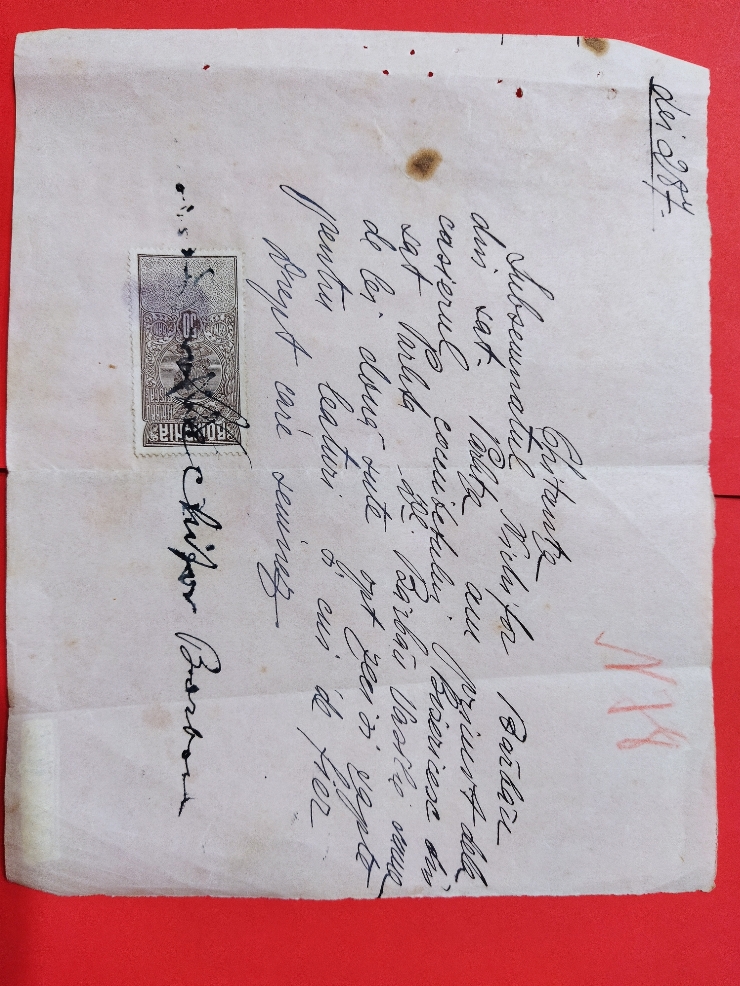 Lei 287
N 14
Chitanța
Subsemnatul Nichifor Barbău
din sat. Părlita am primit dela
casierul comitetului Bisericesc din
sat Parlita dl Barbău Vasile suma
de lei două sute opt zeci și șapte
pentru leaturi și cui de fier
Drept care semnez
Nichifor Barbau
ROMANIA
50